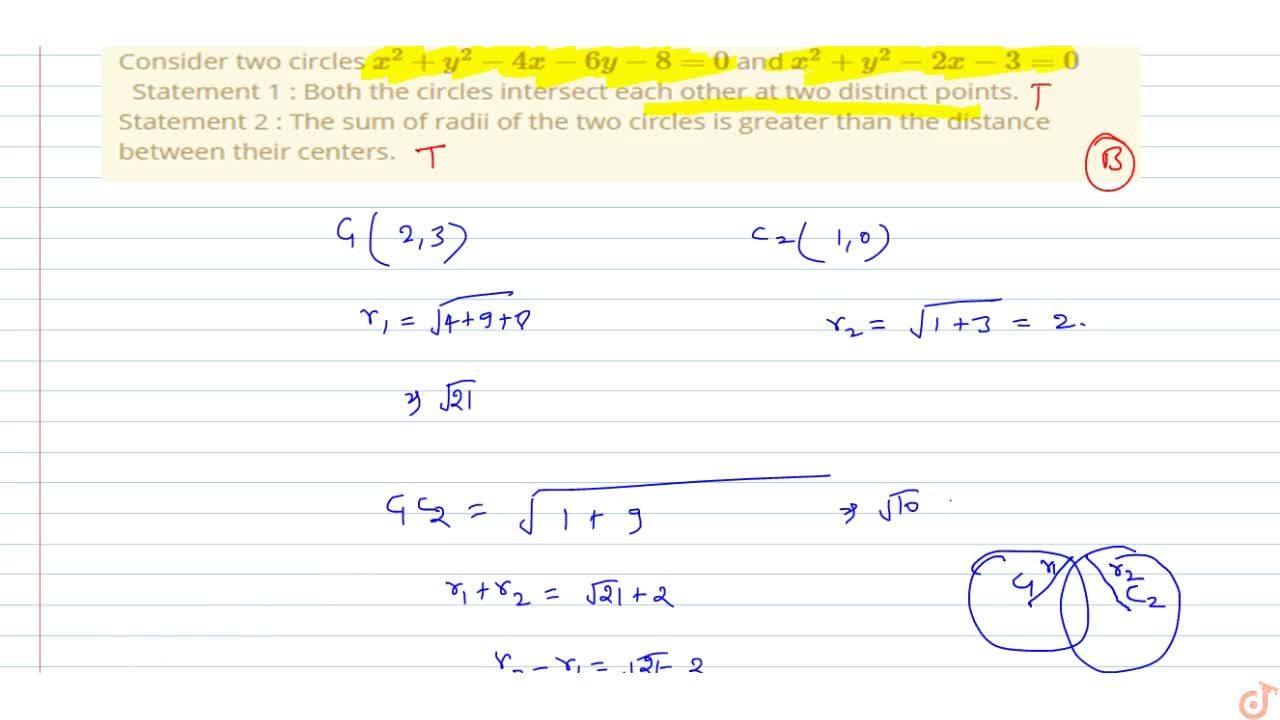 Consider two circles x² + y² − 4x − 6y − 8 = 0 and x² + y² − 2x − 3 = 0
Statement 1 : Both the circles intersect each other at two distinct points. T
Statement 2 : The sum of radii of the two circles is greater than the distance
between their centers. T
B
C₁ ( 2,3) C₂ ( 1,0)
r₁ = √4+9+8 r₂ = √1+3 = 2.
⇒ √21
C₁C₂ = √1 + 9 ⇒ √10
r₁+r₂ = √21+2
C₁ r₁ r₂ C₂
r₂ − r₁ = √21− 2